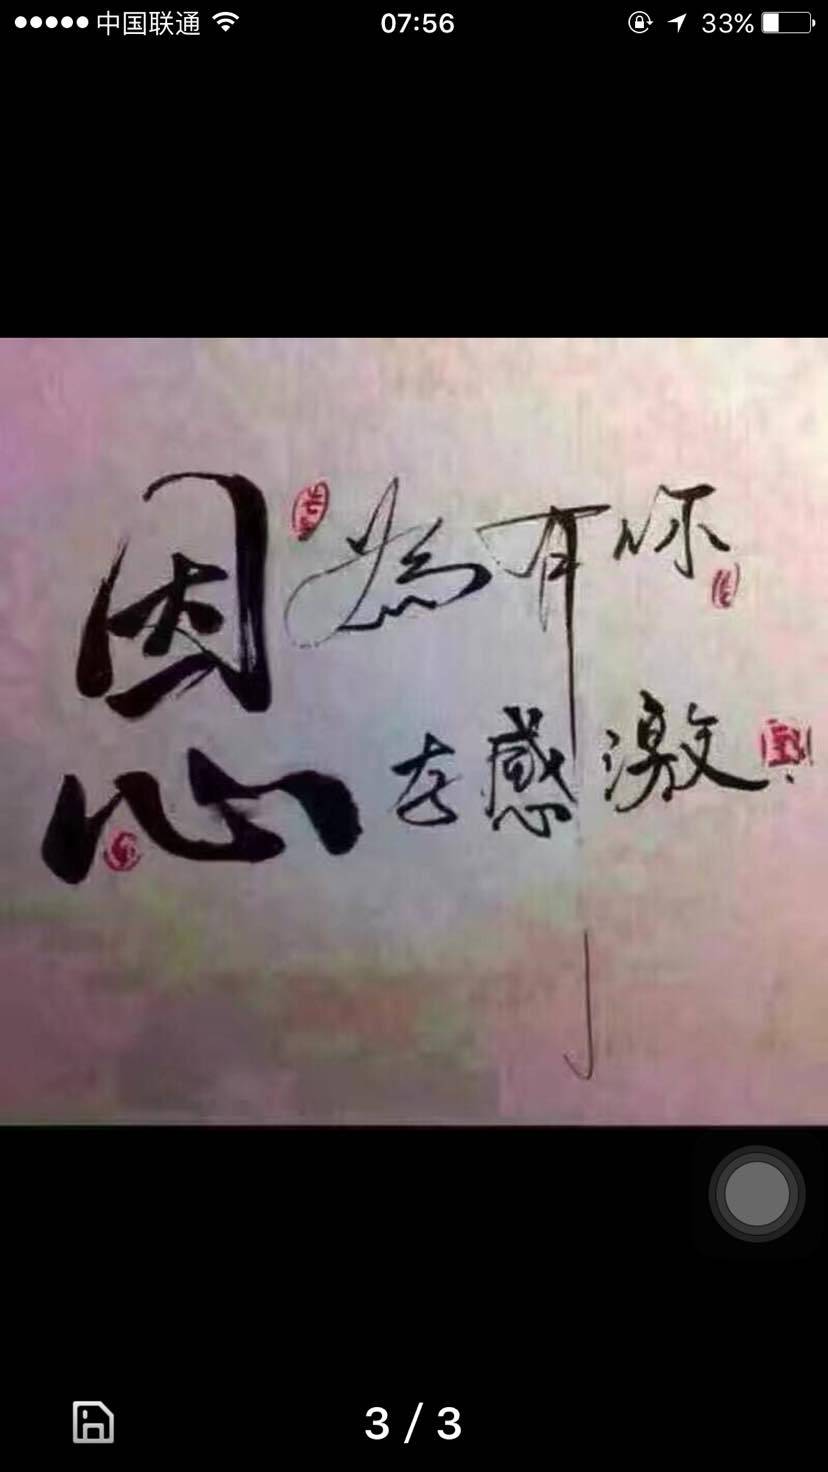 中国联通 07:56 33%
因為有你
心存感激
3 / 3